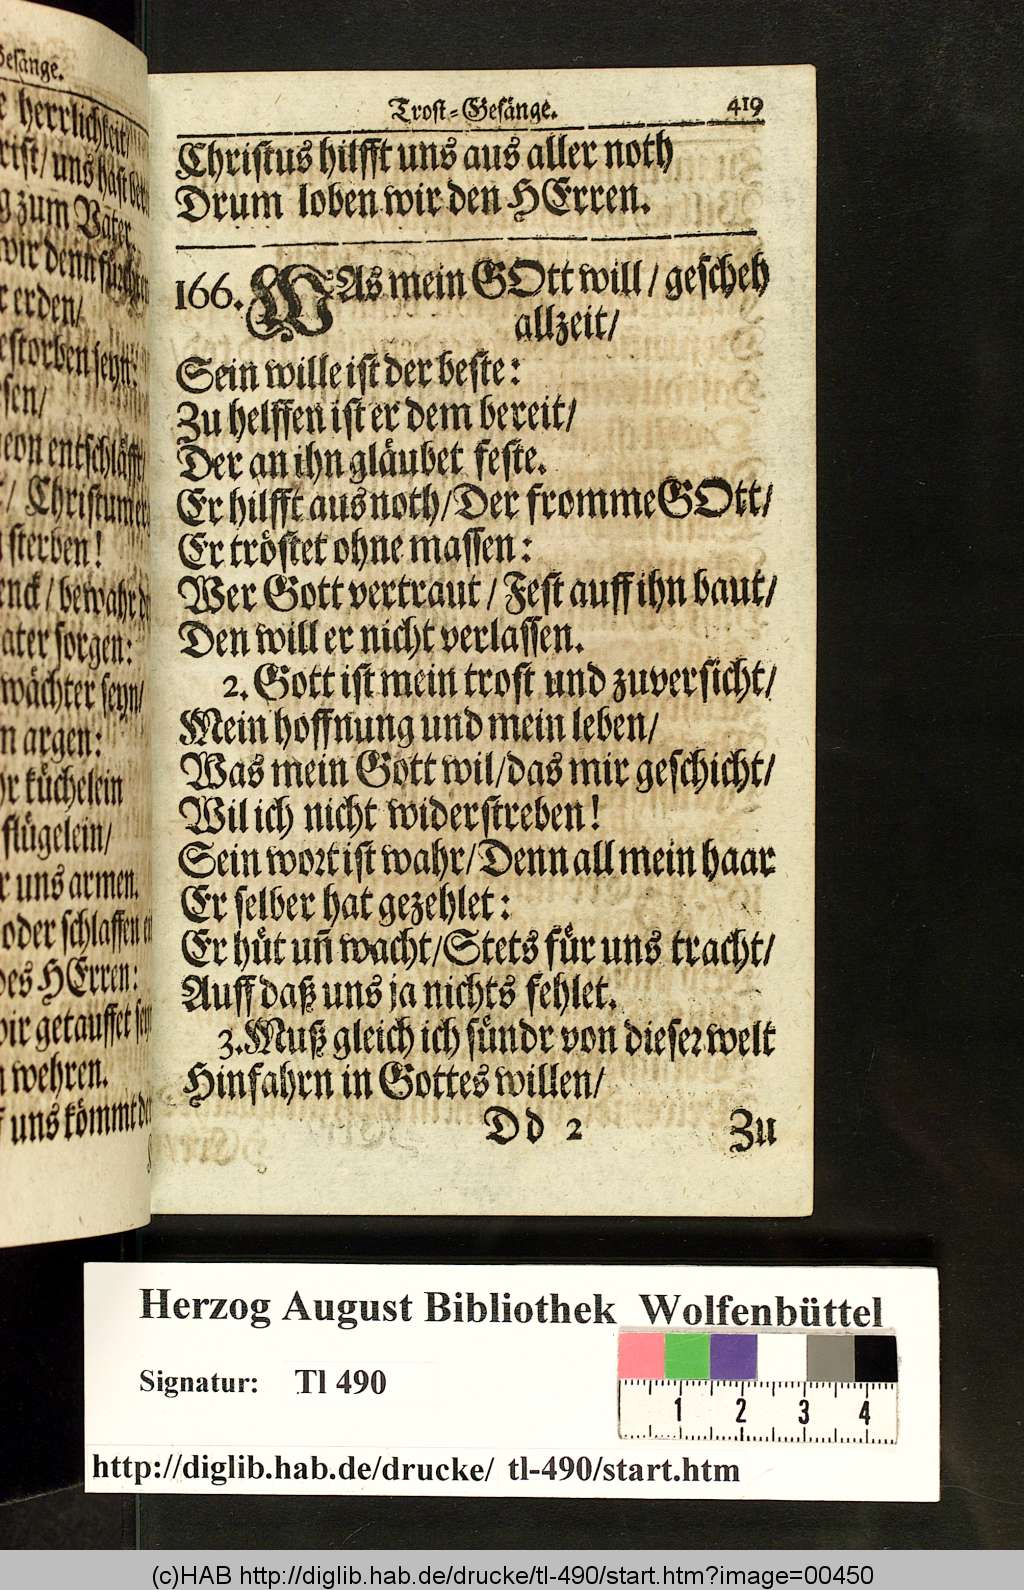 Gesänge.
herrlichkeit/
uns hast
zum Vater.
wir denn
erden/
gestorben seyn:
entschläfft/
Christum
sterben!
bewahr
sorgen:
wächter seyn/
argen:
küchelein
flügelein/
uns armen.
oder schlaffen
des HErren:
wir getauffet
wehren.
uns kömmt
Trost-Gesänge. 419
Christus hilfft uns aus aller noth
Drum loben wir den HErren.
166. WAs mein GOtt will / gescheh
allzeit/
Sein wille ist der beste:
Zu helffen ist er dem bereit/
Der an ihn gläubet feste.
Er hilfft aus noth/Der fromme GOtt/
Er tröstet ohne massen:
Wer Gott vertraut / Fest auff ihn baut/
Den will er nicht verlassen.
2. Gott ist mein trost und zuversicht/
Mein hoffnung und mein leben/
Was mein Gott wil/das mir geschicht/
Wil ich nicht widerstreben!
Sein wort ist wahr/Denn all mein haar
Er selber hat gezehlet:
Er hüt uñ wacht/Stets für uns tracht/
Auff daß uns ja nichts fehlet.
3. Muß gleich ich sündr von dieser welt
Hinfahrn in Gottes willen/
Dd 2 Zu
Herzog August Bibliothek Wolfenbüttel
Signatur: Tl 490
1 2 3 4
http://diglib.hab.de/drucke/ tl-490/start.htm
(c)HAB http://diglib.hab.de/drucke/tl-490/start.htm?image=00450